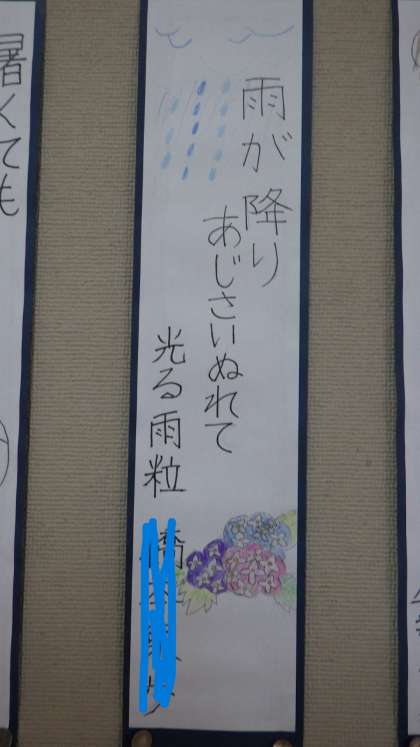 雨が降り
あじさいぬれて
光る雨粒
暑くても